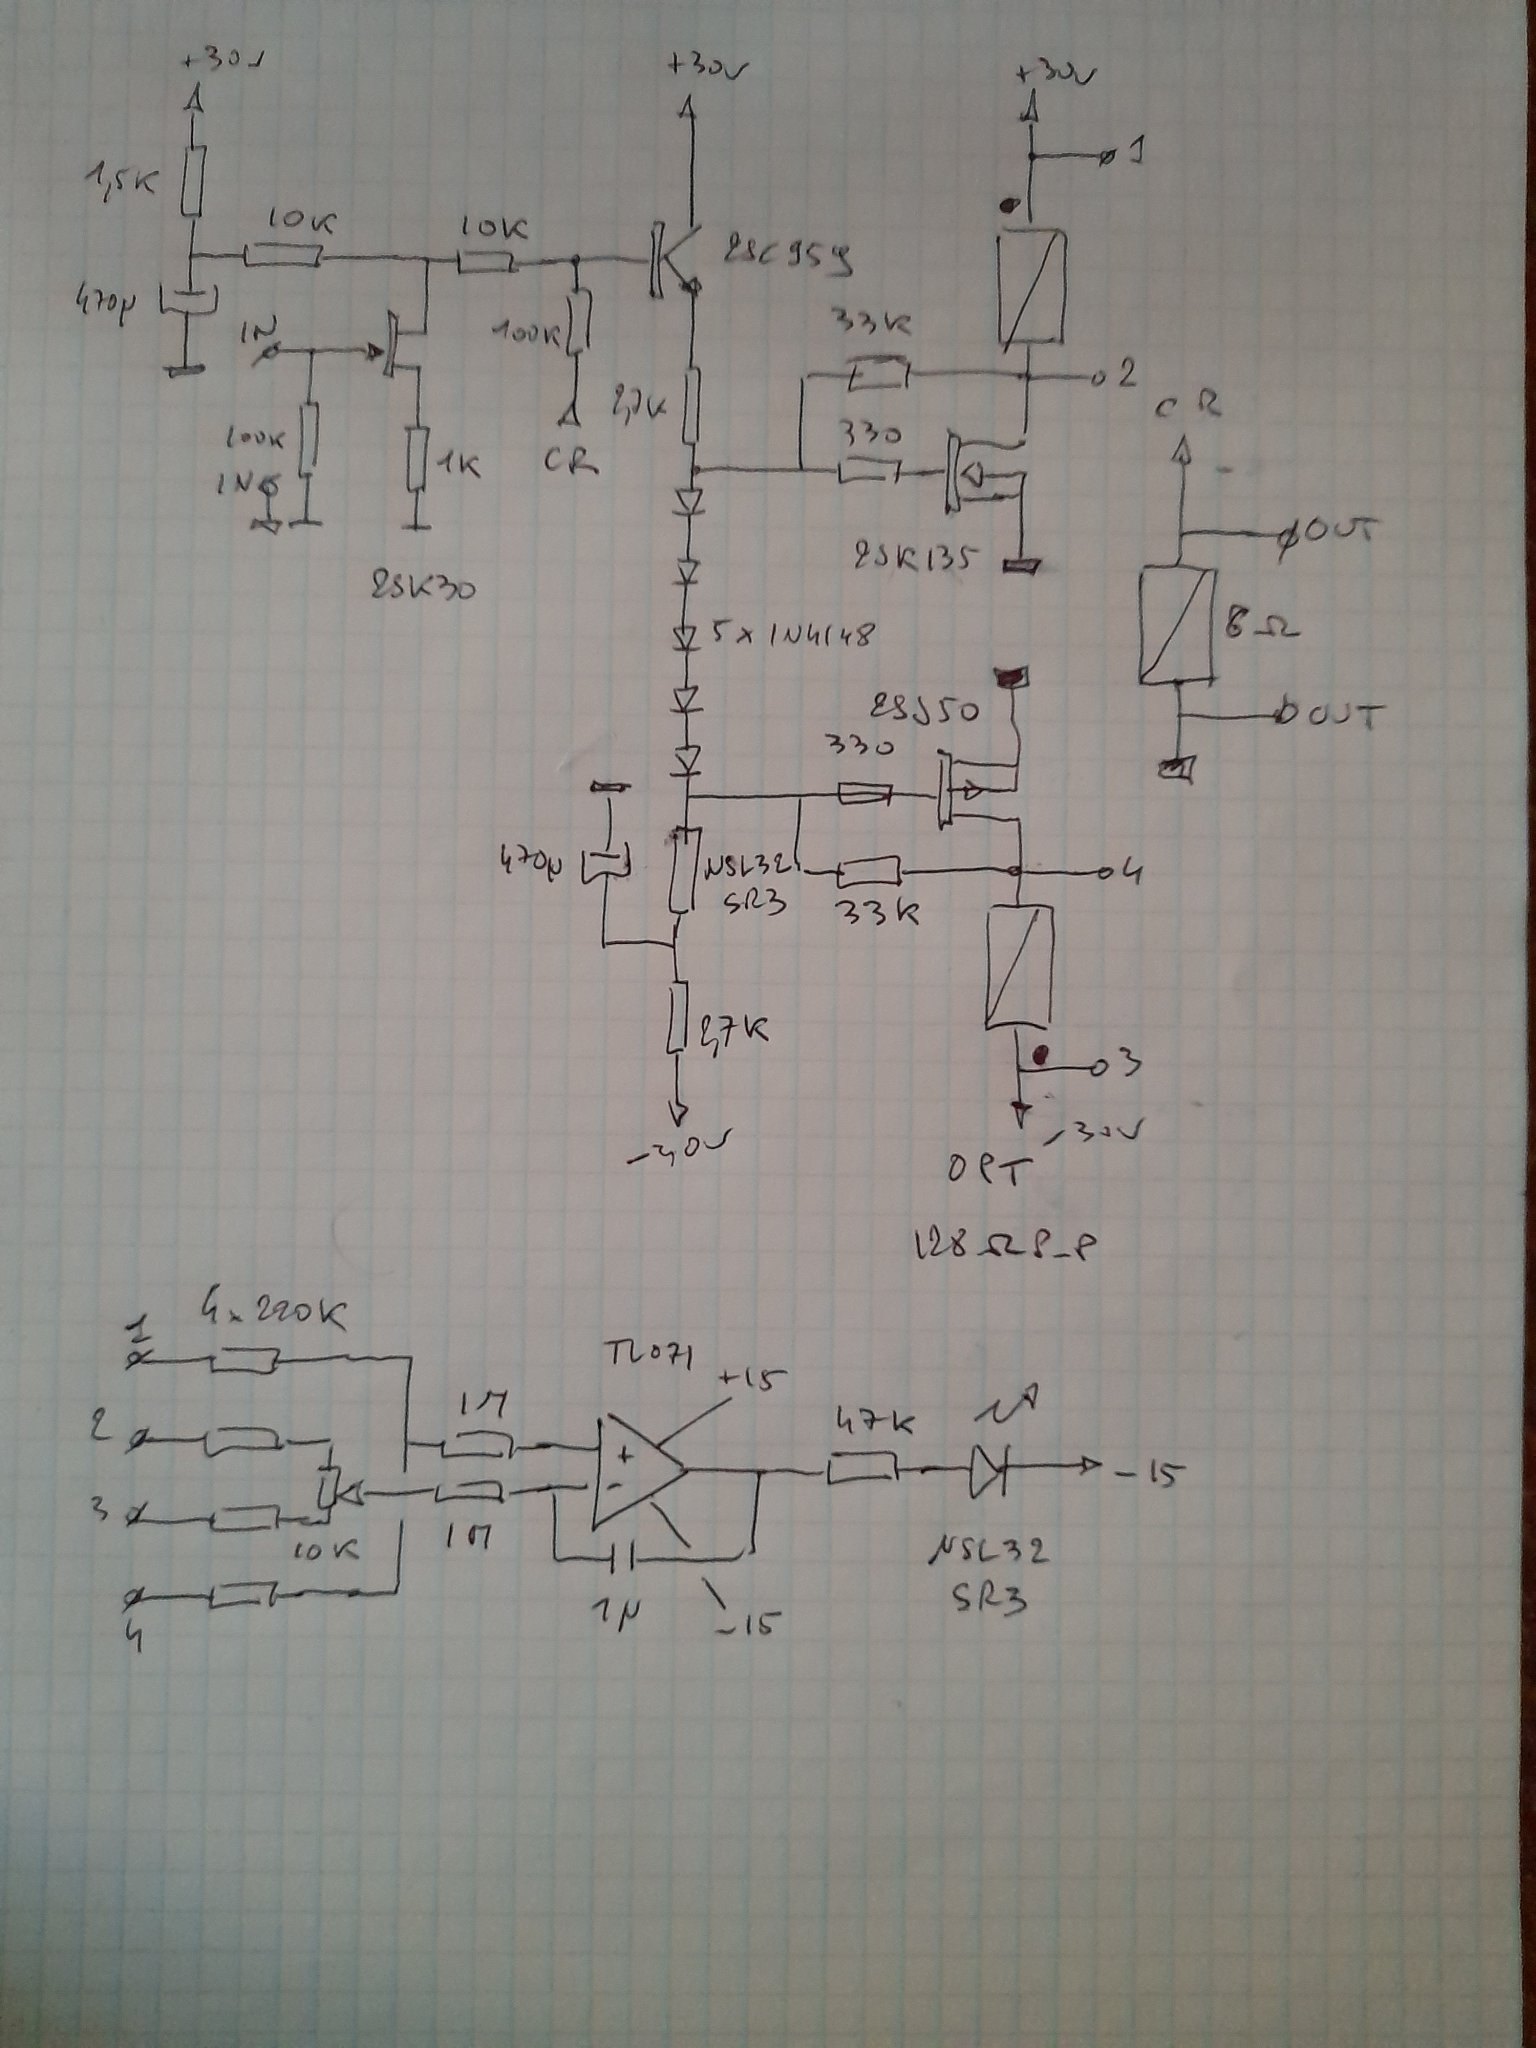 +30V
+30V
+30V
1
1,5K
10K
10K
2SC959
470µ
IN
100K
33K
2
2,7K
CR
100K
1K
330
IN
CR
OUT
2SK135
2SK30
5x1N4148
8Ω
2SJ50
330
OUT
470µ
NSL32
SR3
4
33K
2,7K
3
-30V
-30V
OPT
128ΩP-P
4x220K
1
TL071
+15
1M
47K
2
+
-
-15
3
10K
1M
NSL32
SR3
1µ
-15
4